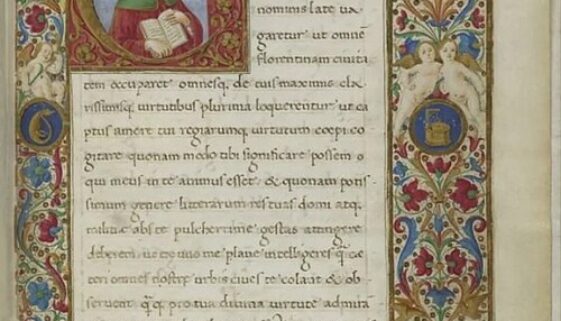 nominis late ua
garetur ut omnē
florentinam ciuita
tem occuparet omnesq, de tuis maximis cla
rissimisq, uirtutibus plurima loquerentur ut ca
ptus amore tui regiarumq, uirtutum coepi co
gitare quonam modo tibi significare possem q
qui meus in te animus esset & quonam potis
simum genere litterarum res tuas domi atq,
militiae abs te pulcherrime gestas attingere
deberem. ut
me plane intelligeres
teri omnes nostrae urbis ciues te colant & ob
seruent
pro tua diuina uirtute admira